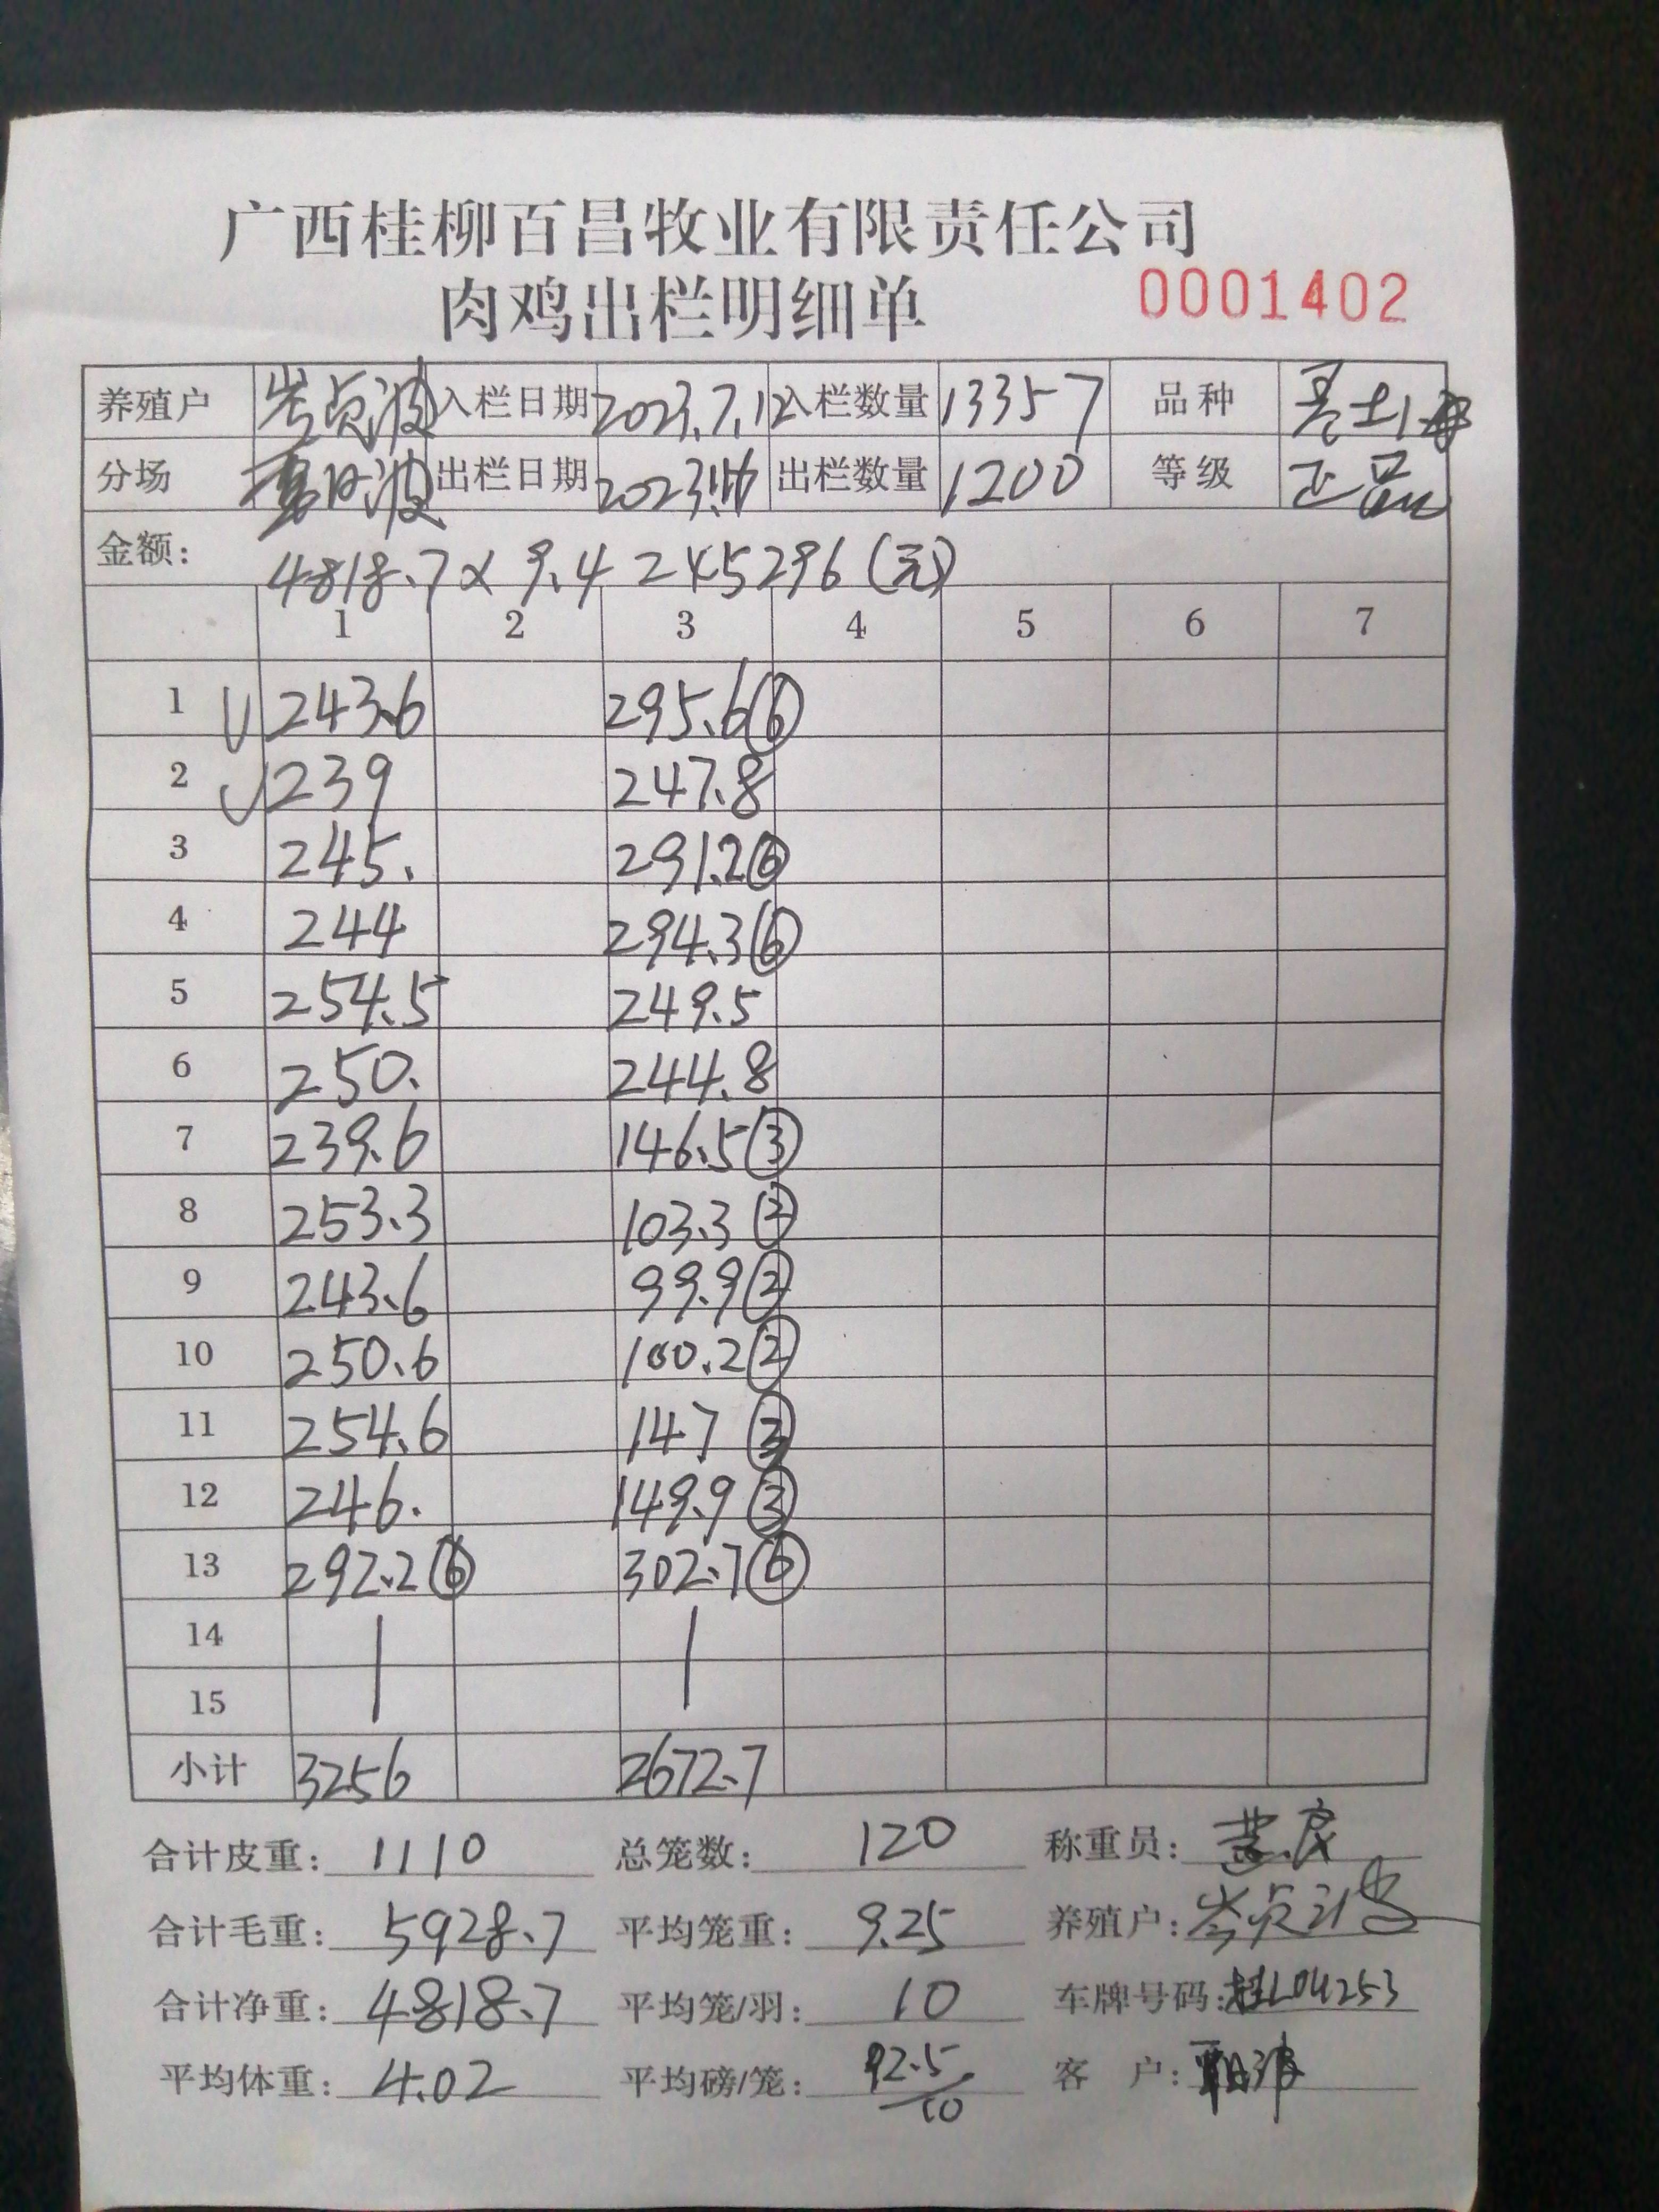 广西桂柳百昌牧业有限责任公司
肉鸡出栏明细单 0001402
养殖户 岑贞波 入栏日期 2023.7.12 入栏数量 13357 品种
分场 出栏日期 出栏数量 1200 等级 正品
金额: 4818.7×9.4=45296(元)
1 2 3 4 5 6 7
1 243.6 295.6⑥
2 239 247.8
3 245. 291.2⑥
4 244 294.3⑥
5 254.5 249.5
6 250. 244.8
7 239.6 146.5③
8 253.3 103.3②
9 243.6 99.9②
10 250.6 100.2②
11 254.6 147③
12 246. 149.9③
13 292.2⑥ 302.7⑥
14
15
小计 3256 2672.7
合计皮重: 1110 总笼数: 120 称重员:
合计毛重: 5928.7 平均笼重: 9.25 养殖户: 岑贞波
合计净重: 4818.7 平均笼/羽: 10 车牌号码: 桂L04253
平均体重: 4.02 平均磅/笼: 92.5/10 客户: